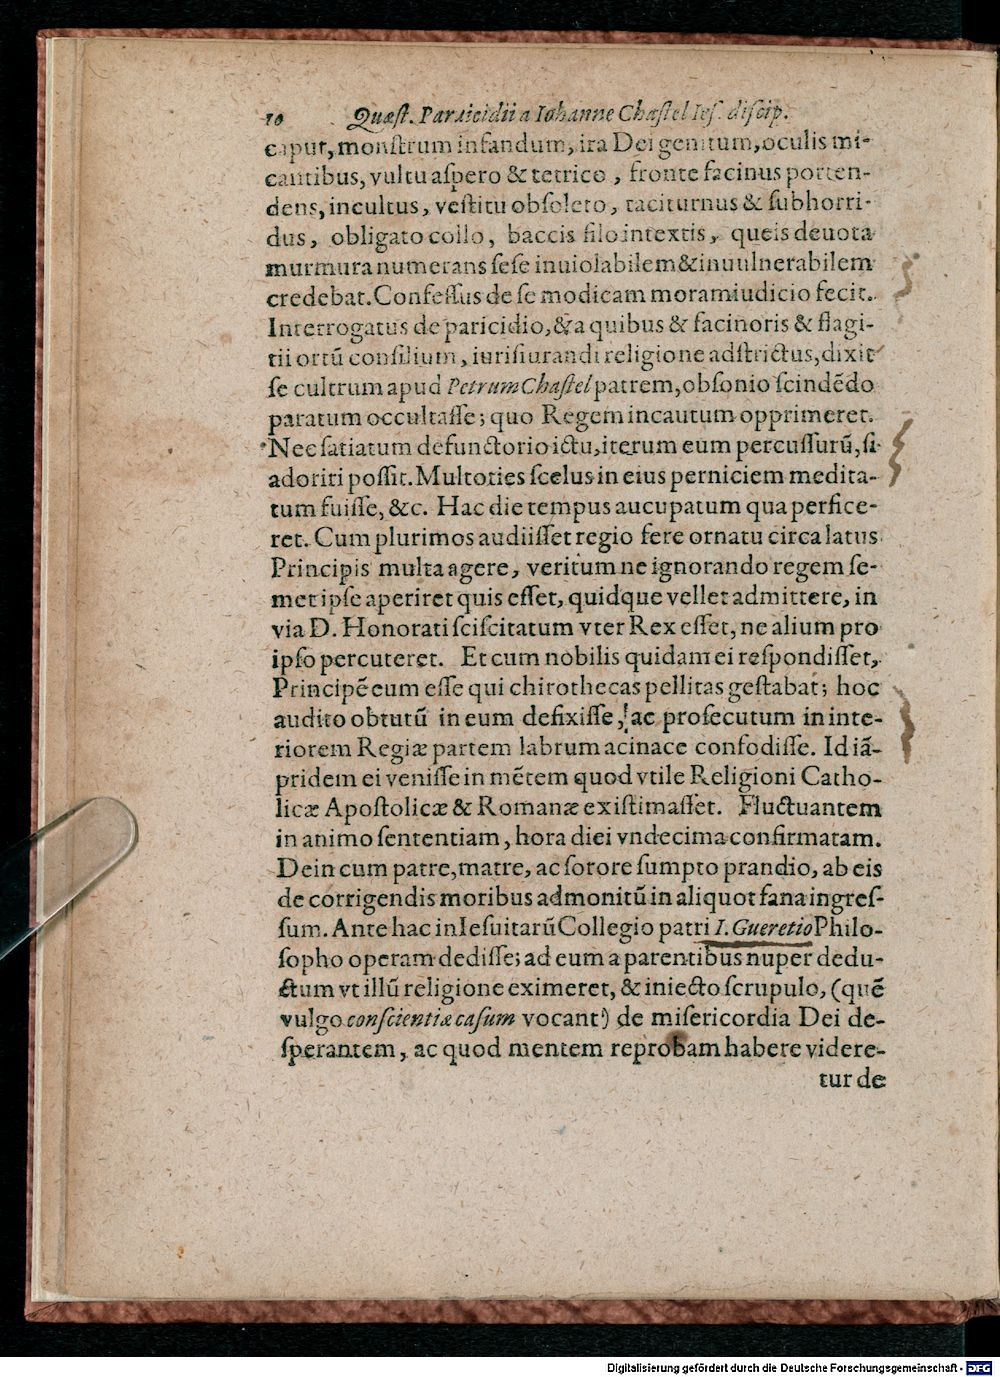 10 Quæst. Paricidii a Iohanne Chastel Ies. discip.
caput, monſtrum infandum, ira Dei genitum, oculis mi-
cantibus, vultu aſpero & tetrico, fronte facinus porten-
dens, incultus, veſtitu obſoleto, taciturnus & ſubhorri-
dus, obligato collo, baccis filo intextis, queis deuota
murmura numerans ſeſe inuiolabilem & inuulnerabilem
credebat. Confeſſus de ſe modicam moram iudicio fecit.
Interrogatus de paricidio, & a quibus & facinoris & flagi-
tii ortū conſilium, iuriſiurandi religione adſtrictus, dixit
ſe cultrum apud Petrum Chaſtel patrem, obſonio ſcindēdo
paratum occultaſſe; quo Regem incautum opprimeret.
Nec ſatiatum defunctorio ictu, iterum eum percuſſurū, ſi
adoriri poſſit. Multoties ſcelus in eius perniciem medita-
tum fuiſſe, &c. Hac die tempus aucupatum qua perfice-
ret. Cum plurimos audiiſſet regio fere ornatu circa latus
Principis multa agere, veritum ne ignorando regem ſe-
met ipſe aperiret quis eſſet, quidque vellet admittere, in
via D. Honorati ſciſcitatum vter Rex eſſet, ne alium pro
ipſo percuteret. Et cum nobilis quidam ei reſpondiſſet,
Principē eum eſſe qui chirothecas pellitas geſtabat; hoc
audito obtutū in eum defixiſſe, ac proſecutum in inte-
riorem Regiæ partem labrum acinace confodiſſe. Id iā-
pridem ei veniſſe in mētem quod vtile Religioni Catho-
licæ Apoſtolicæ & Romanæ exiſtimaſſet. Fluctuantem
in animo ſententiam, hora diei vndecima confirmatam.
Dein cum patre, matre, ac ſorore ſumpto prandio, ab eis
de corrigendis moribus admonitū in aliquot fana ingreſ-
ſum. Ante hac in Ieſuitarū Collegio patri I. Gueretio Philo-
ſopho operam dediſſe; ad eum a parentibus nuper dedu-
ctum vt illū religione eximeret, & iniecto ſcrupulo, (quē
vulgo conſcientiæ caſum vocant) de miſericordia Dei de-
ſperantem, ac quod mentem reprobam habere videre-
tur de
Digitalisierung gefördert durch die Deutsche Forschungsgemeinschaft - DFG